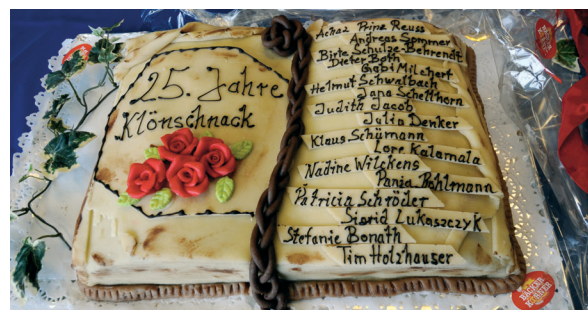 25. Jahre
Klönschnack
Achaz Prinz Reuss
Andreas Sommer
Birte Schulze-Behrendt
Dieter Both
Gabi Milchert
Helmut Schwalbach
Jana Schellhorn
Judith Jacob
Julia Denker
Klaus Schümann
Lore Kalamala
Nadine Wilckens
Pohlmann
Patricia Schröder
Sigrid Lukaszczyk
Stefanie Bonath
Tim Holzhauser
BÄCKER
KÖRNER